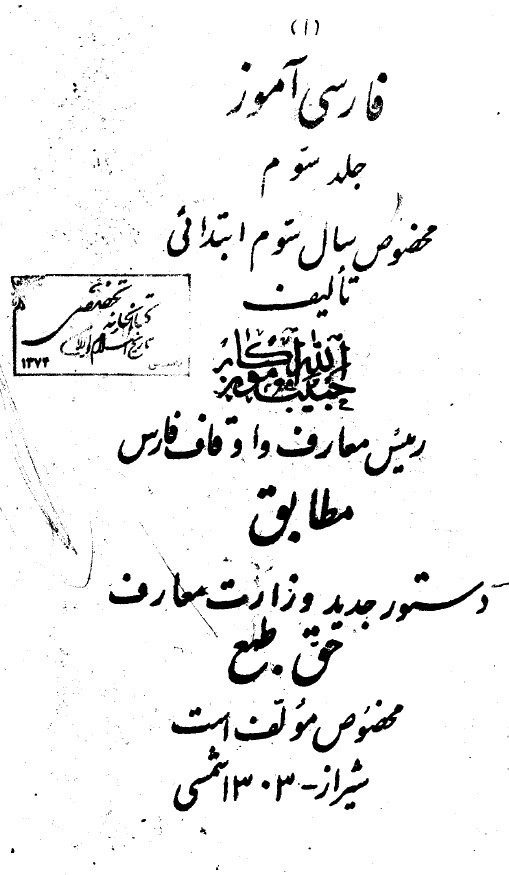 (۱)
فارسی آموز
جلد سوّم
مخصوص سال سوّم ابتدائی
تألیف
حبیب الله آموزگار
کتابخانه تخصصی
تاریخ اسلام و ایران
۱۳۷۴
رئیس معارف و اوقاف فارس
مطابق
دستور جدید وزارت معارف
حقّ طبع
مخصوص مؤلّف است
شیراز - ۱۳۰۳ شمسی